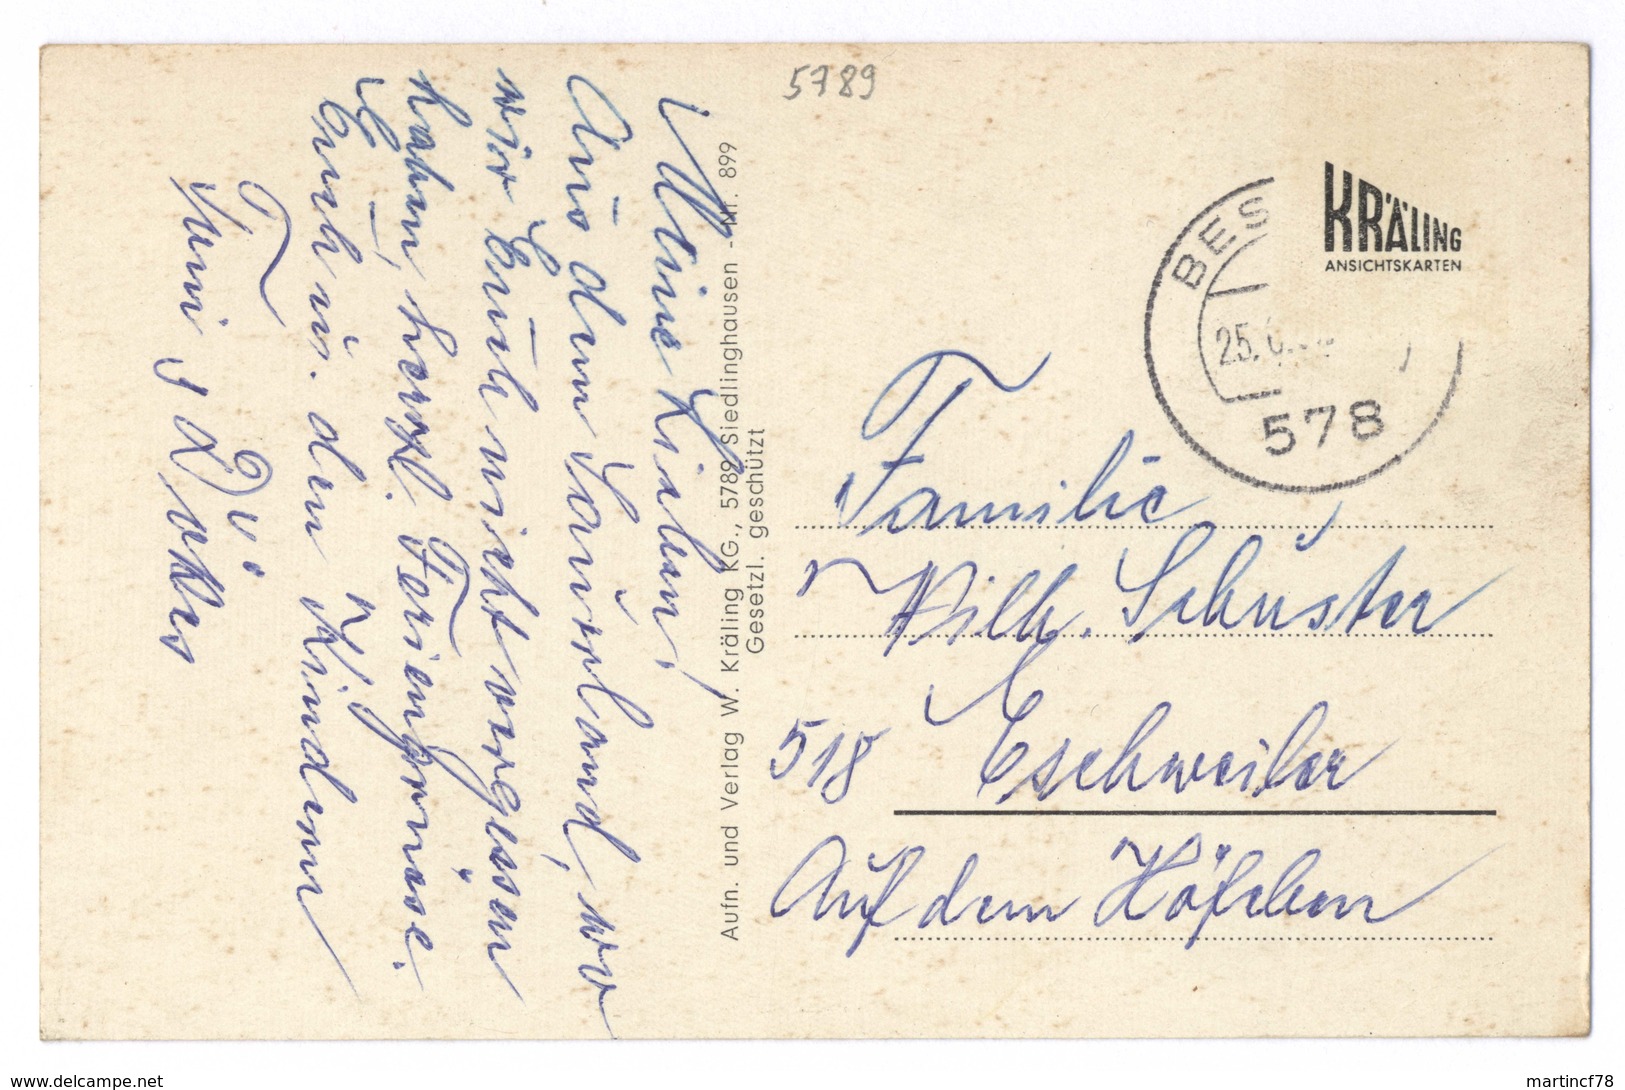 5789
KRÄLING
ANSICHTSKARTEN
BES
25. 6.
578
Familie
Wilh. Schuster
518 Eschweiler
Auf dem Höfchen
Aufn. und Verlag W. Kräling KG., 5789 Siedlinghausen - Nr. 899
Gesetzl. geschützt
Meine Lieben,
Aus dem Sauerland, wo
wir Euch nicht vergessen
haben, herzl. Feriengrüsse.
Euch u. den Kindern
www.delcampe.net
martincf78